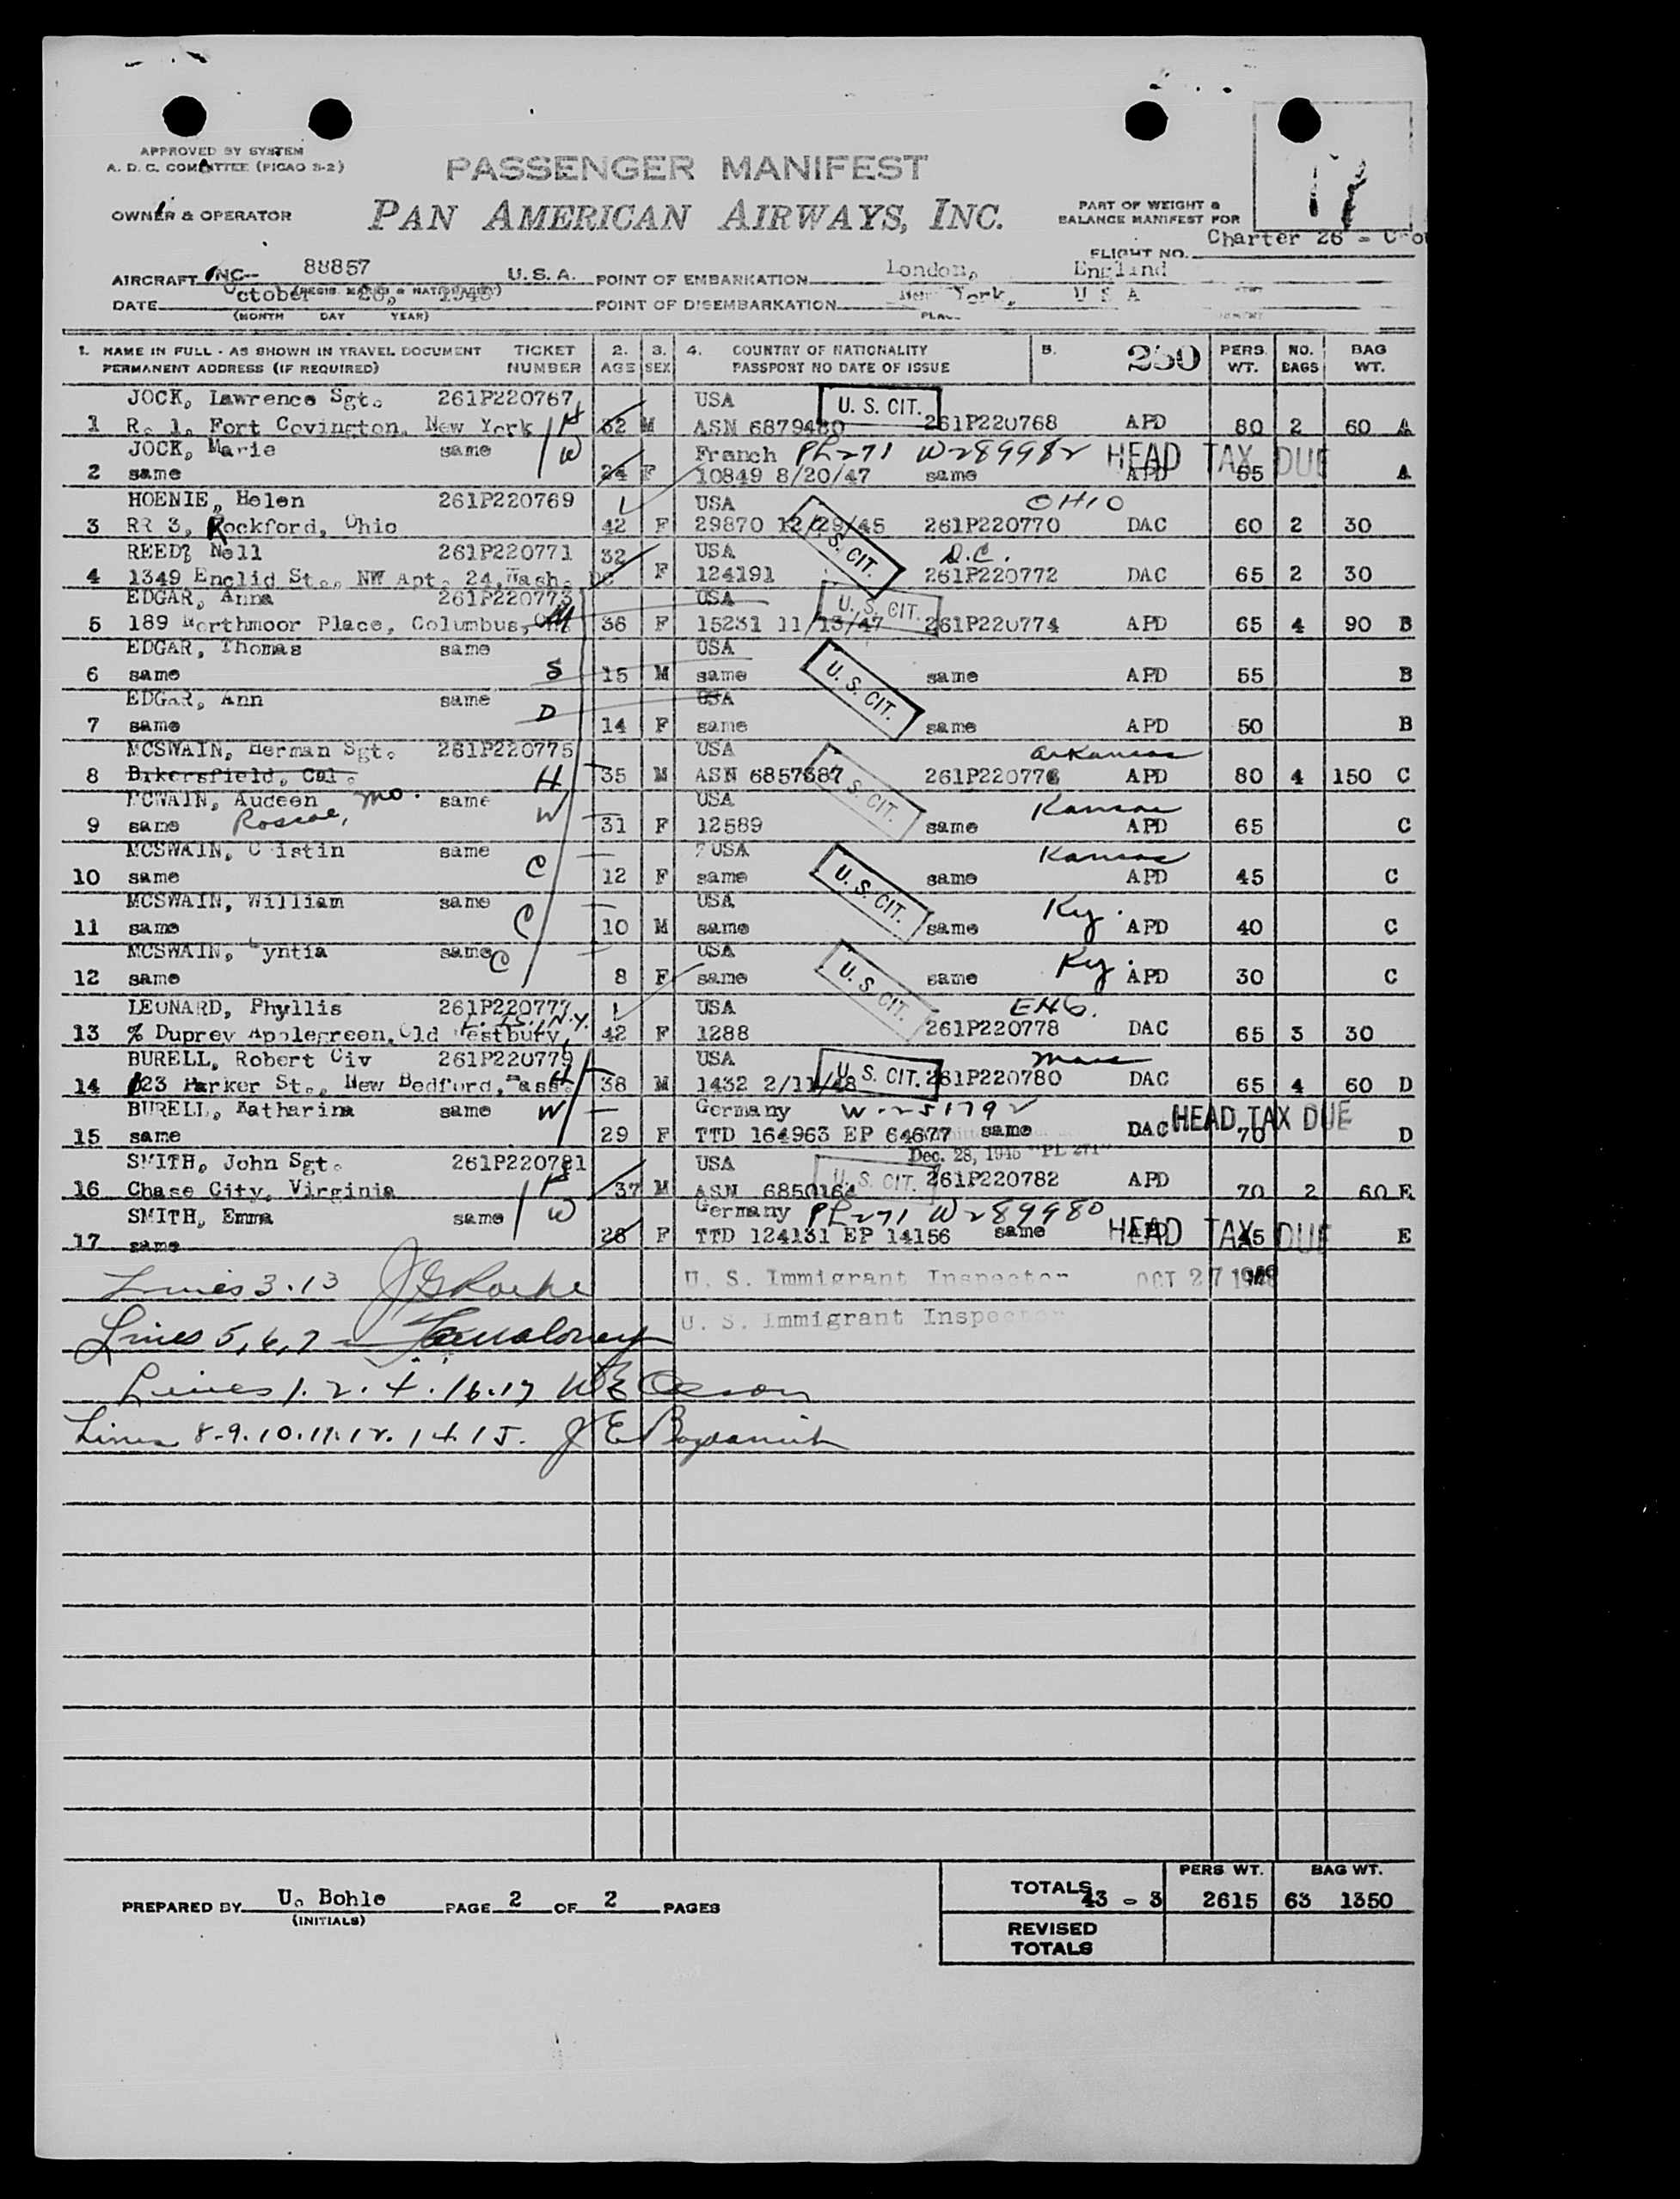 APPROVED BY SYSTEM
A. D. C. COMMITTEE (PICAO S-2)
PASSENGER MANIFEST
OWNER & OPERATOR
PAN AMERICAN AIRWAYS, INC.
PART OF WEIGHT &
BALANCE MANIFEST FOR
17
FLIGHT NO. Charter 26 -
AIRCRAFT NC-- 88857 U.S.A. POINT OF EMBARKATION London, England
(REGIS. MARKS & NATIONALITY)
DATE October 26, 1948 POINT OF DISEMBARKATION New York, U S A
(MONTH DAY YEAR)
1. NAME IN FULL - AS SHOWN IN TRAVEL DOCUMENT TICKET 2. 3. 4. COUNTRY OF NATIONALITY 5. 250 PERS. NO. BAG
PERMANENT ADDRESS (IF REQUIRED) NUMBER AGE SEX PASSPORT NO DATE OF ISSUE WT. BAGS WT.
JOCK, Lawrence Sgt. 261P220767 USA U. S. CIT.
1 R. 1, Fort Covington, New York H 32 M ASN 6879480 261P220768 APD 80 2 60 A
JOCK, Marie same W Franch PL271 W289982 HEAD TAX DUE
2 same 24 F 10849 8/20/47 same APD 55 A
HOENIE, Helen 261P220769 USA OHIO
3 RR 3, Rockford, Ohio 42 F 29870 12/29/45 261P220770 DAC 60 2 30
U. S. CIT.
REED, Nell 261P220771 32 USA D.C.
4 1349 Enclid St., NW Apt. 24, Wash. DC F 124191 261P220772 DAC 65 2 30
EDGAR, Anna 261P220773 USA U. S. CIT.
5 189 Northmoor Place, Columbus, M 36 F 15231 11/13/47 261P220774 APD 65 4 90 B
EDGAR, Thomas same USA
6 same S 15 M same U. S. CIT. same APD 55 B
EDGAR, Ann same USA
7 same D 14 F same same APD 50 B
MCSWAIN, Herman Sgt. 261P220775 USA Arkansas
8 Bakersfield, Cal. H 35 M ASN 6857687 261P220776 APD 80 4 150 C
U. S. CIT.
MCWAIN, Audeen Mo. same USA Kansas
9 same Roscoe, W 31 F 12589 same APD 65 C
MCSWAIN, C istin same USA Kansas
10 same C 12 F same U. S. CIT. same APD 45 C
MCSWAIN, William same USA Ky.
11 same C 10 M same same APD 40 C
MCSWAIN, Cyntia same C USA Ky.
12 same 8 F same U. S. CIT. same APD 30 C
LEONARD, Phyllis 261P220777 USA ENG.
13 % Duprey Applegreen, Old Westbury, L. Is., N.Y. 42 F 1288 261P220778 DAC 65 3 30
BURELL, Robert Civ 261P220779 USA Mass
14 123 Parker St., New Bedford, Mass. H 38 M 1432 2/11/48 U. S. CIT. 261P220780 DAC 65 4 60 D
BURELL, Katharina same W Germany W-251792 HEAD TAX DUE
15 same 29 F TTD 164963 EP 64677 same DAC 70 D
Dec. 28, 1945 "PL 271"
SMITH, John Sgt. 261P220781 USA
16 Chase City, Virginia H 37 M ASN 6850164 U. S. CIT. 261P220782 APD 70 2 60 E
SMITH, Emma same W Germany PL271 W289980
17 same 26 F TTD 124131 EP 14156 same APD HEAD TAX DUE 45 E
Lines 3.13 U. S. Immigrant Inspector OCT 27 1948
Lines 5,6,7 U. S. Immigrant Inspector
Lines 1.2.4.16.17
Lines 8-9.10.11.12.14.15.
PREPARED BY U. Bohle PAGE 2 OF 2 PAGES
(INITIALS)
PERS WT. BAG WT.
TOTALS 43 - 3 2615 63 1350
REVISED
TOTALS